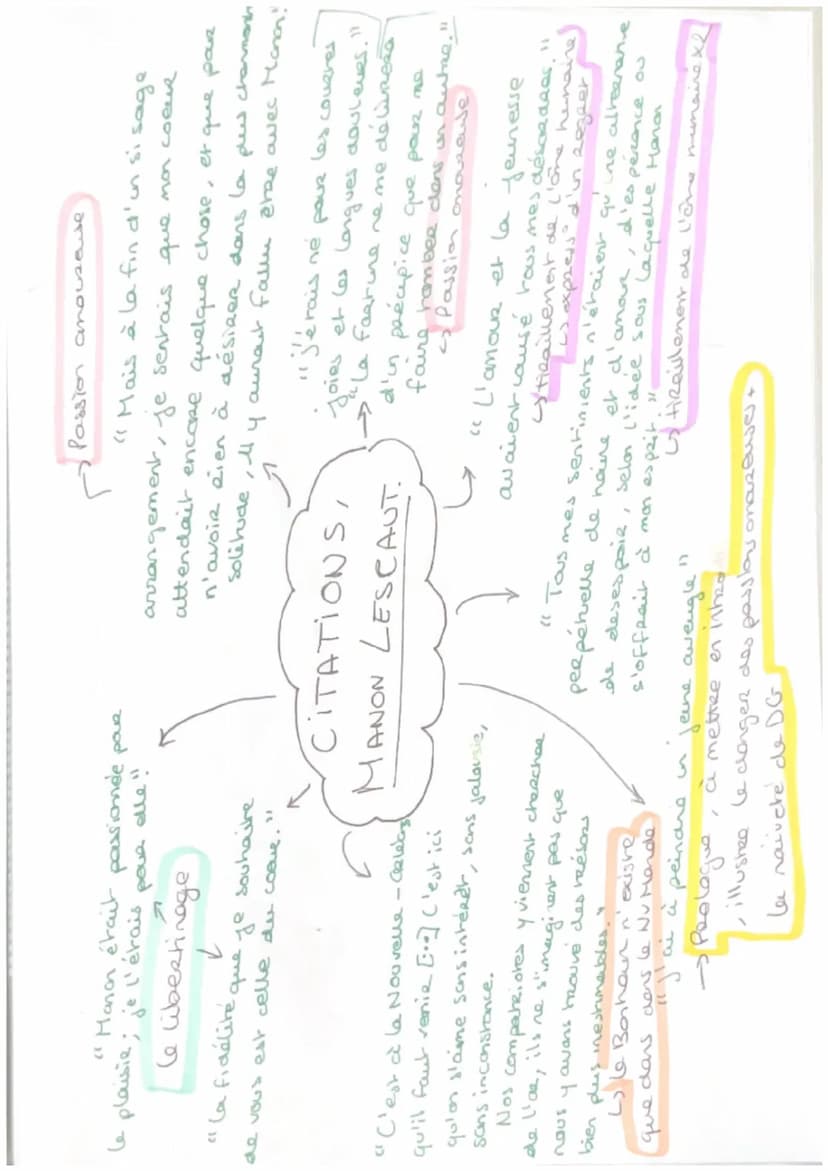 CITATIONS,
MANON LESCAUT.
"Manon était passionnée pour
le plaisir ; je l'étais pour elle."
Le libertinage
"La fidélité que je souhaite
de vous est celle du cœur."
→ Passion amoureuse
"Mais à la fin d'un si sage
arrangement, je sentais que mon coeur
attendait encore quelque chose, et que pour
n'avoir rien à désirer dans la plus charmante
solitude, il y aurait fallu être avec Manon."
"j'étais né pour les courtes
joies et les longues douleurs."
"la fortune ne me délivra
d'un précipice que pour me
faire tomber dans un autre."
↳ Passion amoureuse
"L'amour et la jeunesse
avaient causé tous mes désordres."
↳ tiraillement de l'âme humaine
↳ express° d'un regret
"Tous mes sentiments n'étaient qu'une alternance
perpétuelle de haine et d'amour, d'espérance ou
de desespoir, selon l'idée sous laquelle Manon
s'offrait à mon esprit"
↳ tiraillement de l'âme humaine x2
"C'est à la Nouvelle-Orléans
qu'il faut venir [...] C'est ici
qu'on s'aime sans intérêt, sans jalousie,
sans inconstance.
Nos compatriotes y viennent chercher
de l'or, ils ne s'imaginent pas que
nous y avons trouvé des trésors
bien plus inestimables."
↳ Le Bonheur n'existe
que dans dans le Nv Monde
"J'ai à peindre un jeune aveugle"
→ Prologue, à mettre en intro
, illustre le danger des passions amoureuses +
la naïveté de DG